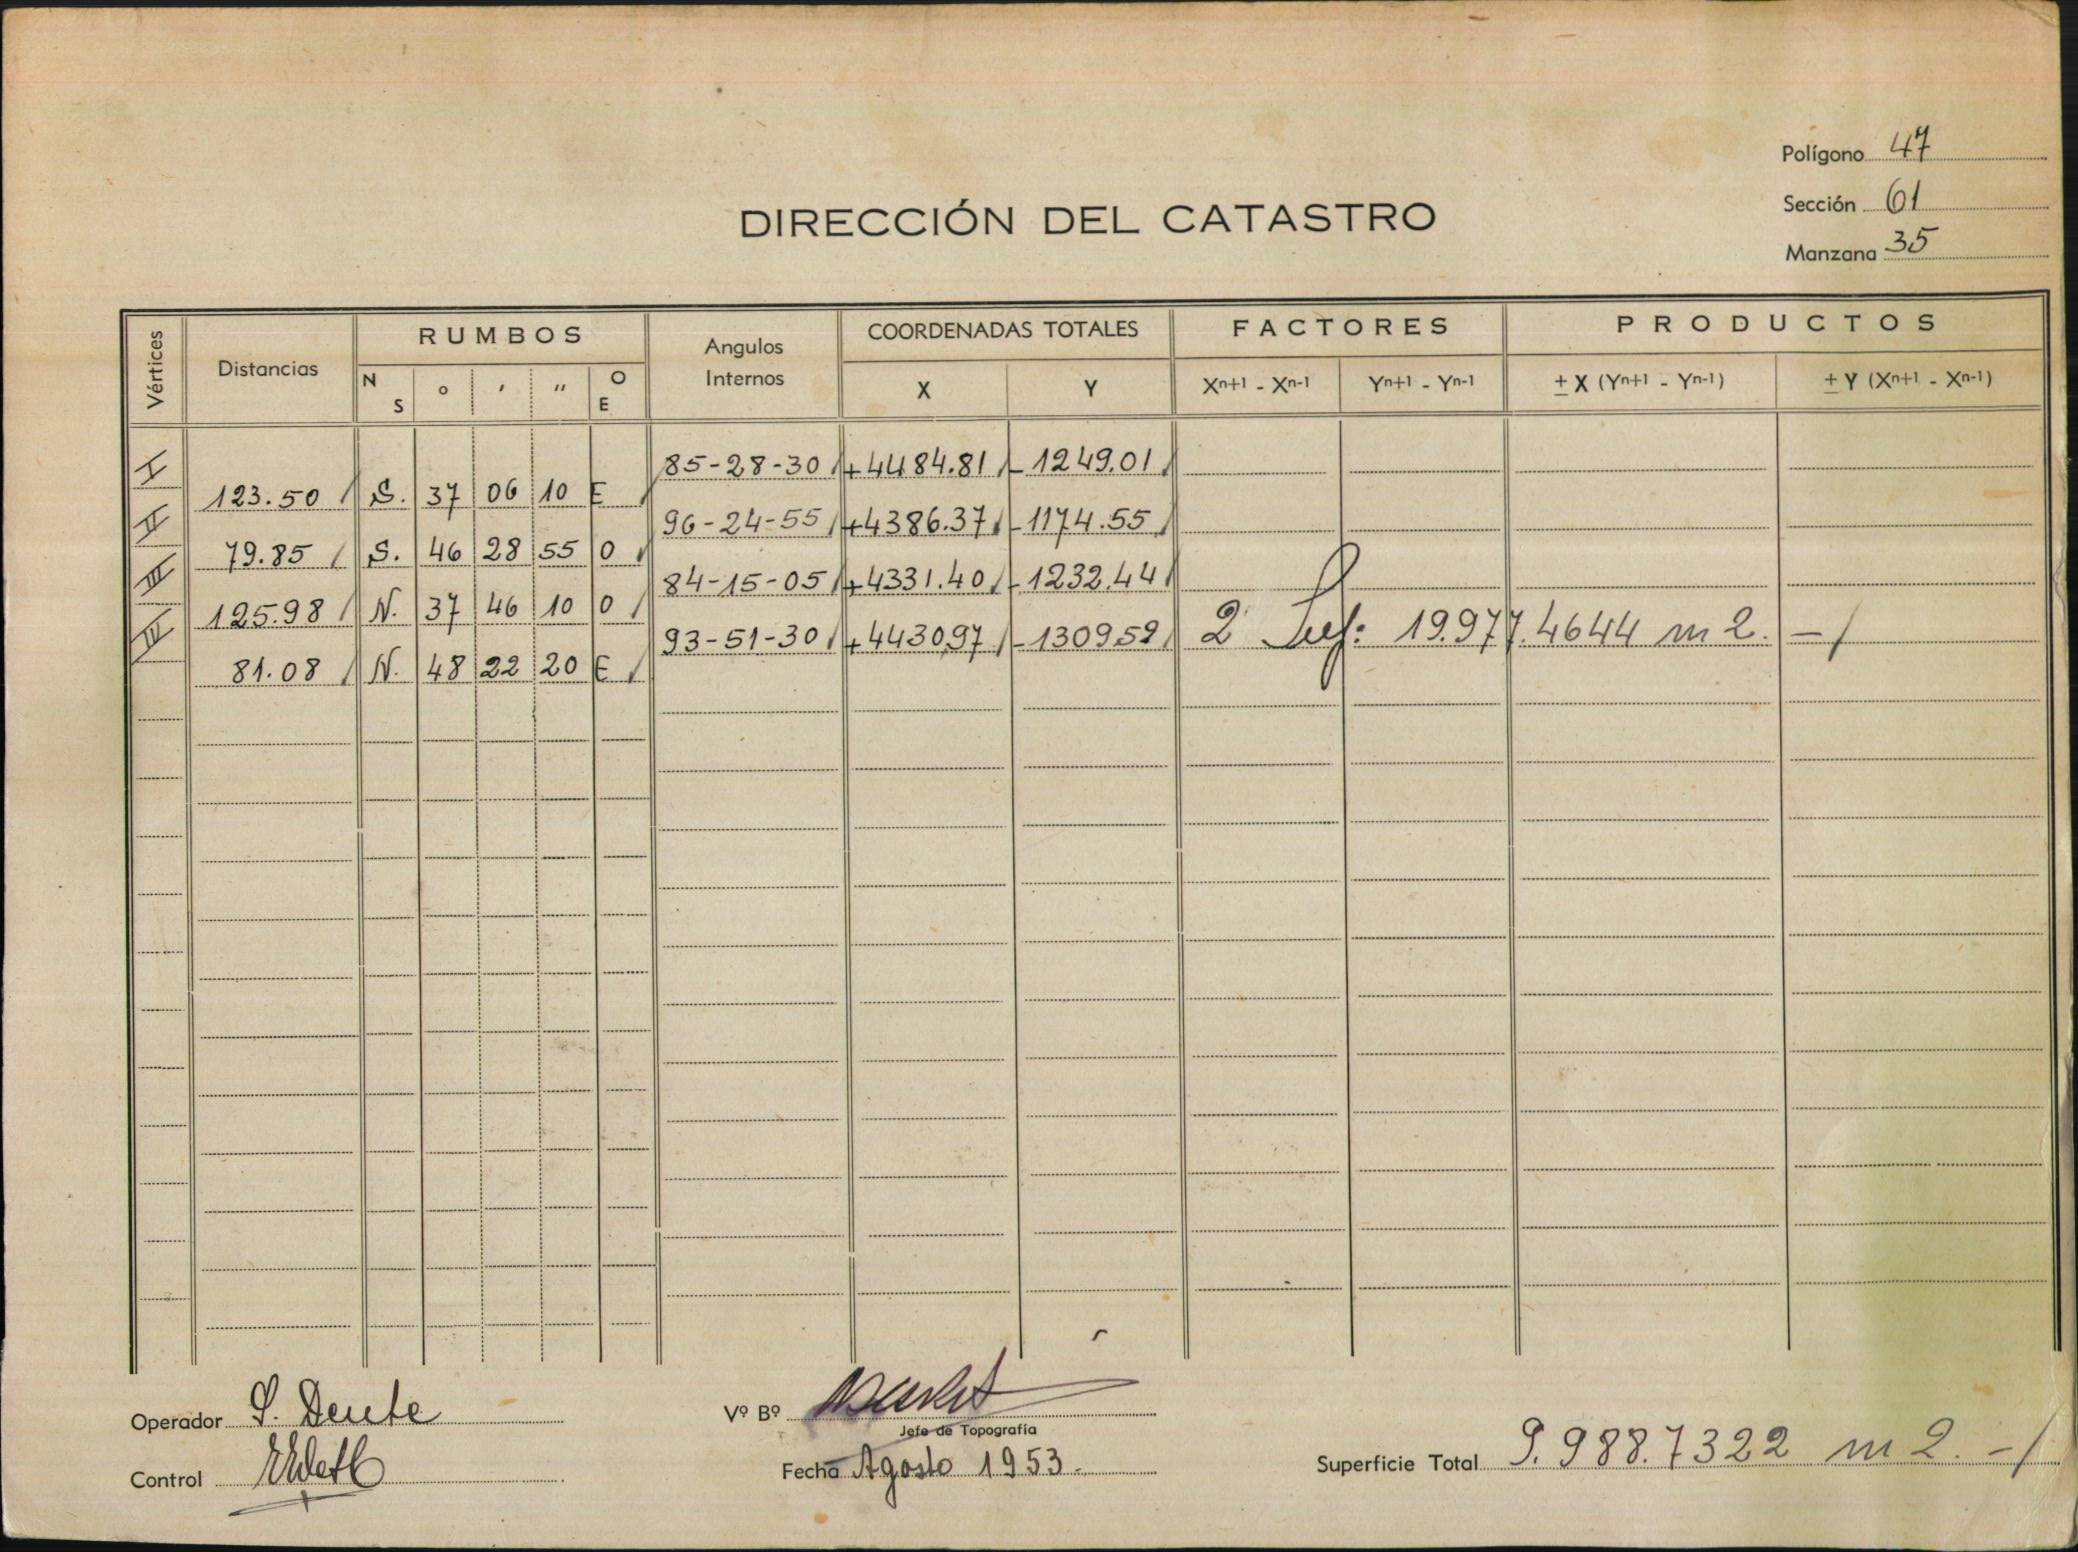 Polígono 47
Sección 61
DIRECCIÓN DEL CATASTRO
Manzana 35
Vértices Distancias RUMBOS Angulos Internos COORDENADAS TOTALES FACTORES PRODUCTOS
N S ° ' " O E X Y Xn+1 - Xn-1 Yn+1 - Yn-1 ± X (Yn+1 - Yn-1) ± Y (Xn+1 - Xn-1)
I 85-28-30 +4484.81 -1249.01
123.50 S. 37 06 10 E
II 96-24-55 +4386.37 -1174.55
79.85 S. 46 28 55 O
III 84-15-05 +4331.40 -1232.44
125.98 N. 37 46 10 O
IV 93-51-30 +4430,97 -1309,59 2 Sup: 19.977.4644 m2. -/
81.08 N. 48 22 20 E
Operador S. Dente
Vº Bº
Jefe de Topografía
Control
Fecha Agosto 1953.-
Superficie Total 9.988.7322 m2. -/